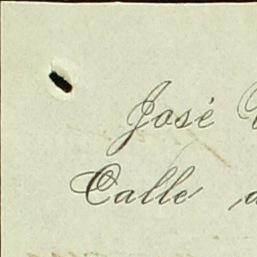 José
Calle